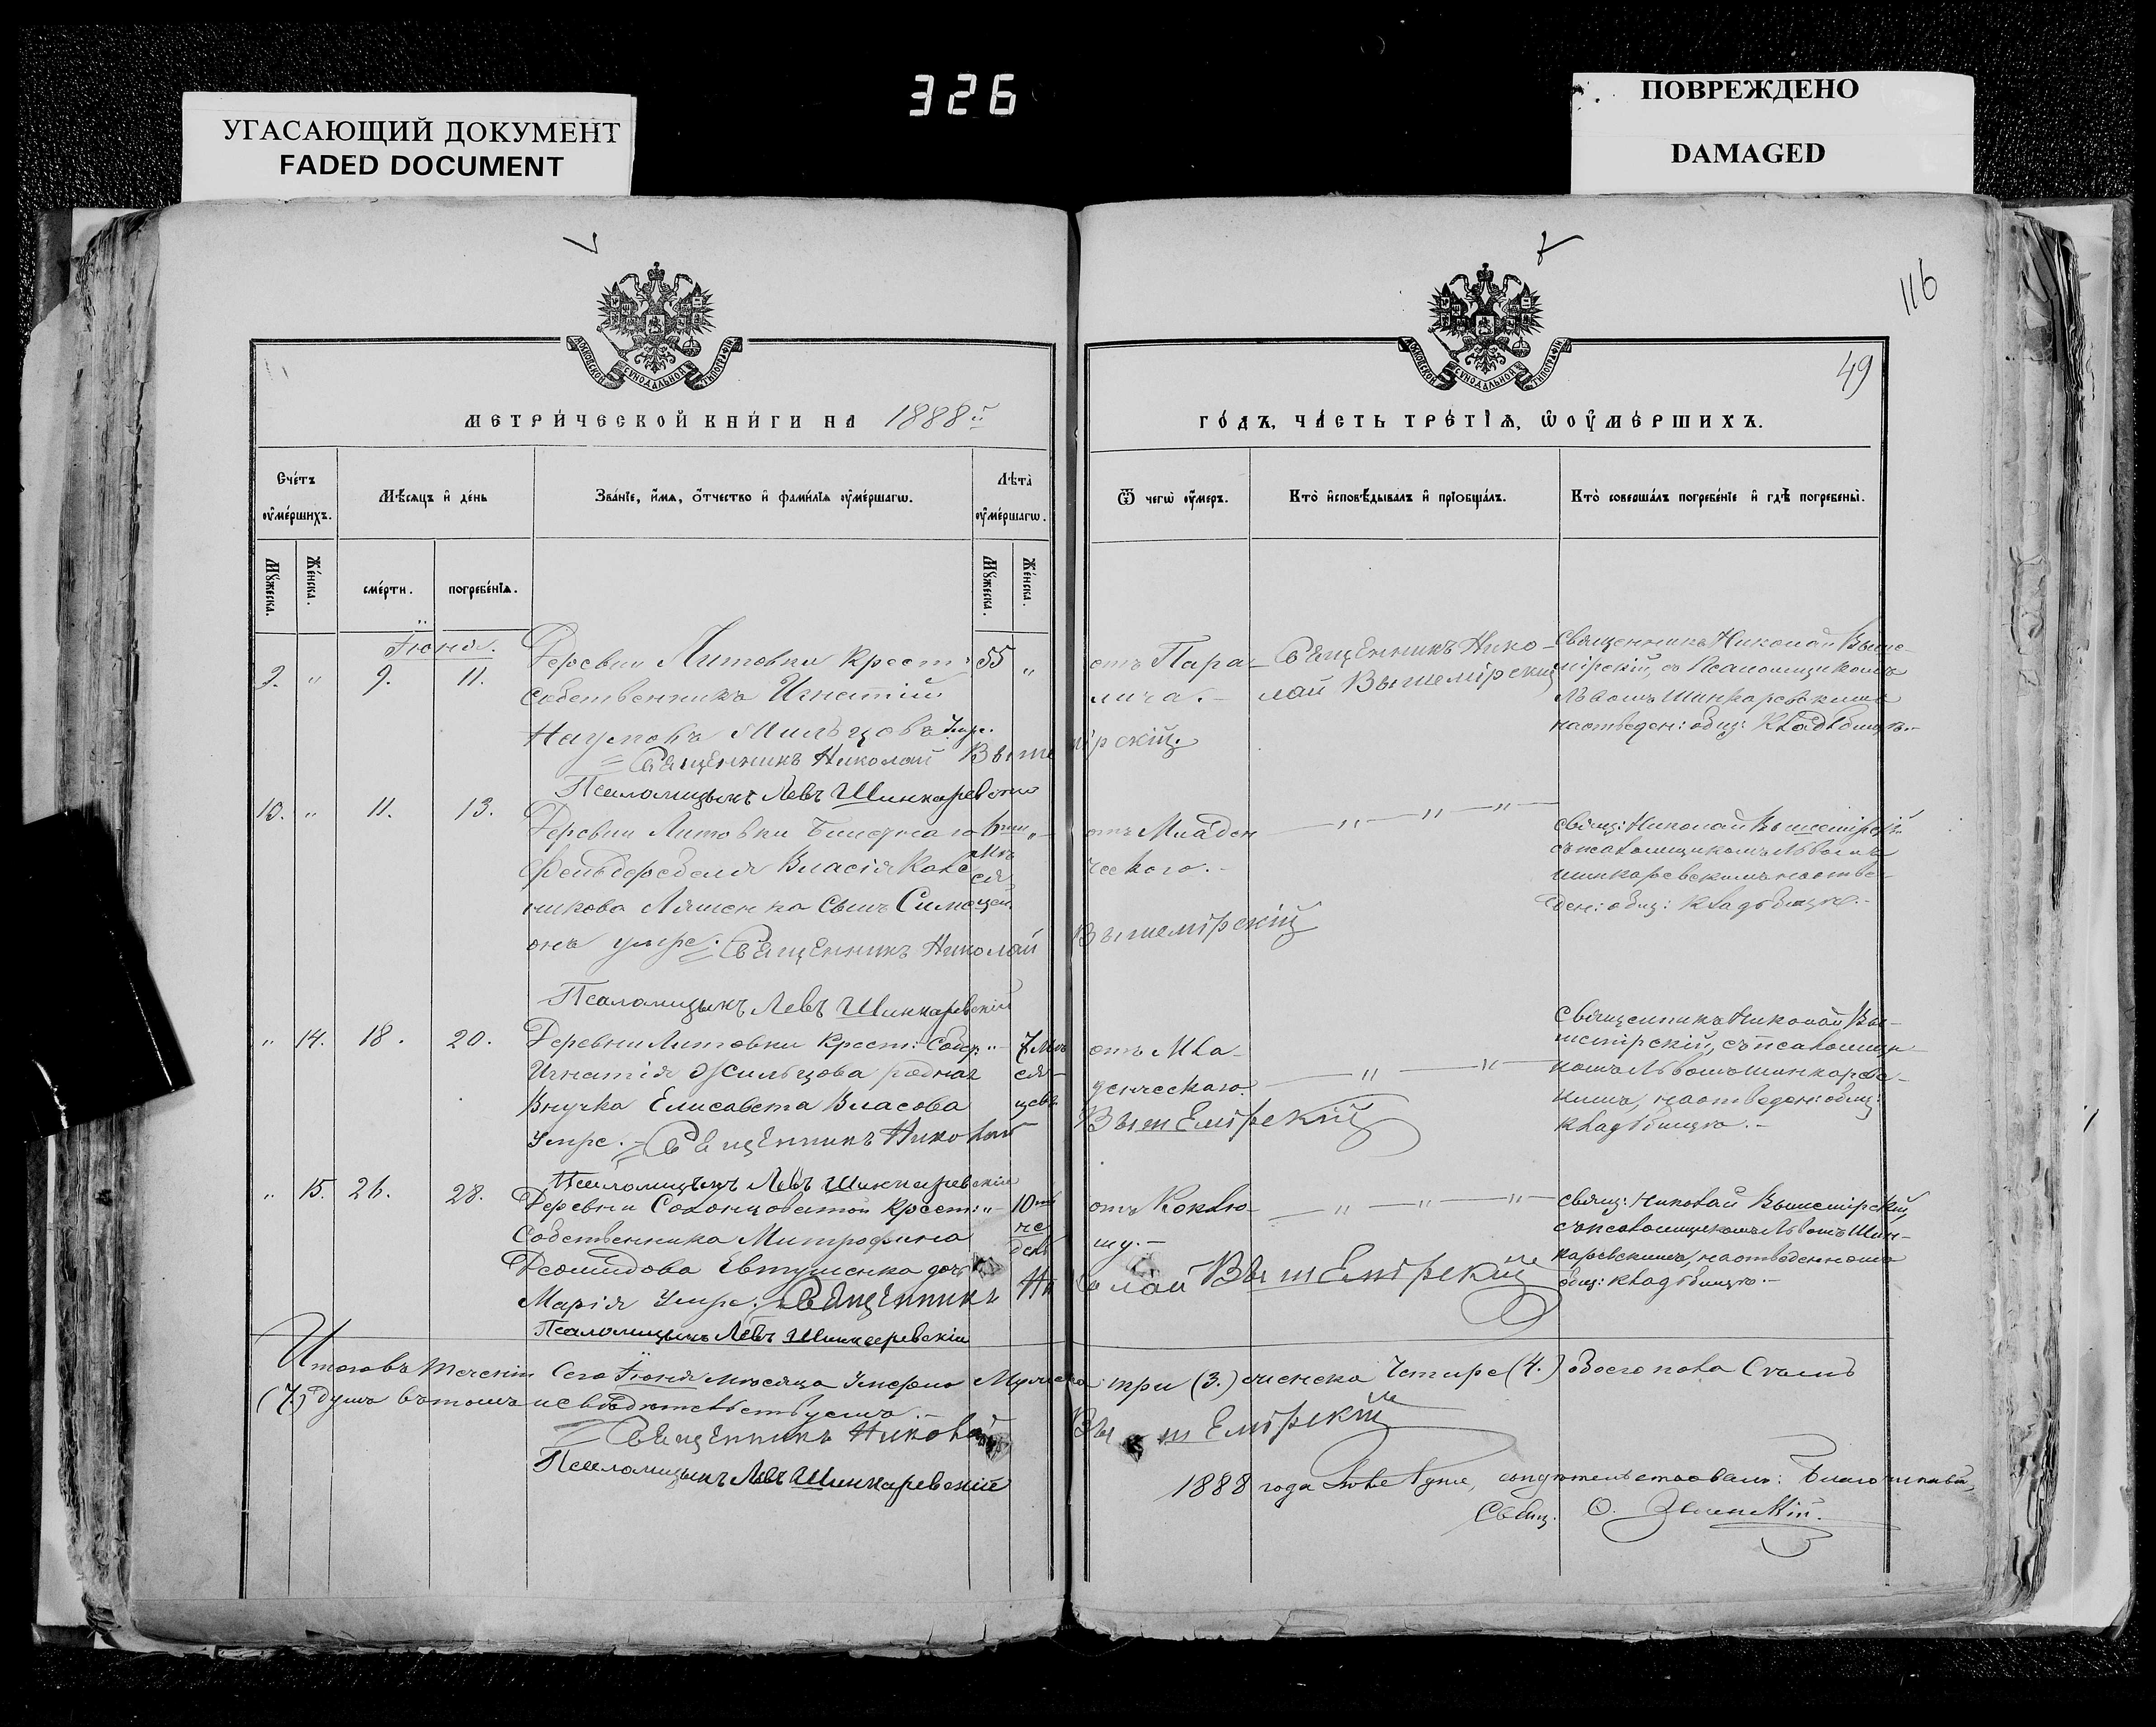 326
УГАСАЮЩИЙ ДОКУМЕНТ
FADED DOCUMENT
ПОВРЕЖДЕНО
DAMAGED
116
49
МОСКОВСКОЙ СѴНОДАЛЬНОЙ ТИПОГРАФІИ
МОСКОВСКОЙ СѴНОДАЛЬНОЙ ТИПОГРАФІИ
МЕТРИ́ЧЕСКОЙ КНИ́ГИ НА 1888й
ГО́ДЪ, ЧА́СТЬ ТРЕ́ТІѦ, Ѡ ОУ҆МЕ́РШИХЪ.
Сче́тъ оу҆ме́ршихъ.
Мѣ́сяцъ и҆ де́нь
Зва́нїе, и҆́мя, ѻ҆́тчество и҆ фами́лїя оу҆ме́ршагѡ.
Лѣта̀ оу҆ме́ршагѡ.
Ѿ чегѡ̀ оу҆́меръ.
Кто̀ и҆сповѣ́дывалъ и҆ прїобща́лъ.
Кто̀ соверша́лъ погребе́нїе и҆ гдѣ̀ погребены̀.
Мꙋ́жеска.
Же́нска.
сме́рти.
погребе́нїя.
Мꙋ́жеска.
Же́нска.
Іюня.
9. " 9. 11.
Деревни Литовки крест: 55 "
собственникъ Игнатій
Наумовъ Жильцовъ Умре.
= Священникъ Николай Вышемірскій.
Псаломщикъ Левъ Шинкаревскій
отъ Пара-
лича.-
Священникъ Нико-
лай Вышемірскій
Священникъ Николай Выше-
мірскій, съ Псаломщикомъ
Львомъ Шинкаревскимъ
на отведен: общ: кладбищѣ.-
10. " 11. 13.
Деревни Литовки
Власія
Ляшенка сынъ Симе-
онъ умре. = Священникъ Николай Вышемірскій
Псаломщикъ Левъ Шинкаревскій
отъ Младен
ческаго.-
— " — " —
свящ: Николай Вышемірскій
съ псаломщикомъ Львомъ
Шинкаревскимъ на отве-
ден: общ: кладбищѣ.-
" 14. 18. 20.
Деревни Литовки крест: собс. "- 7 мѣ
Игнатія Жильцова родная ся-
внучка Елисавета Власова цевъ
умре. = Священникъ Николай Вышемірскій
Псаломщикъ Левъ Шинкаревскій
отъ Мла-
денческаго.
— " — " —
Священникъ Николай Вы-
шемірскій, съ псаломщи-
комъ Львомъ Шинкаревс-
кимъ, на отведен: общ:
кладбищѣ.-
" 15. 26. 28.
Деревни Солонцоватой крест: "- 10
собственника Митрофана не
Евтушенка дочь дель
Марія Умре. = Священникъ Николай Вышемірскій
Псаломщикъ Левъ Шинкаревскій
отъ Коклю-
шу.-
— " — " —
свящ: Николай Вышемірскій,
съ псаломщикомъ Львомъ Шин-
каревскимъ, на отведенномъ
общ: кладбищѣ.-
Итого въ теченіи сего Іюня мѣсяца умерло Мужеска три (3.) женска Четыре (4.) обоего пола семь
(7.) душъ въ томъ и свидѣтельствуемъ.-
= Священникъ Николай Вышемірскій
Псаломщикъ Левъ Шинкаревскій
1888 года
Свящ.